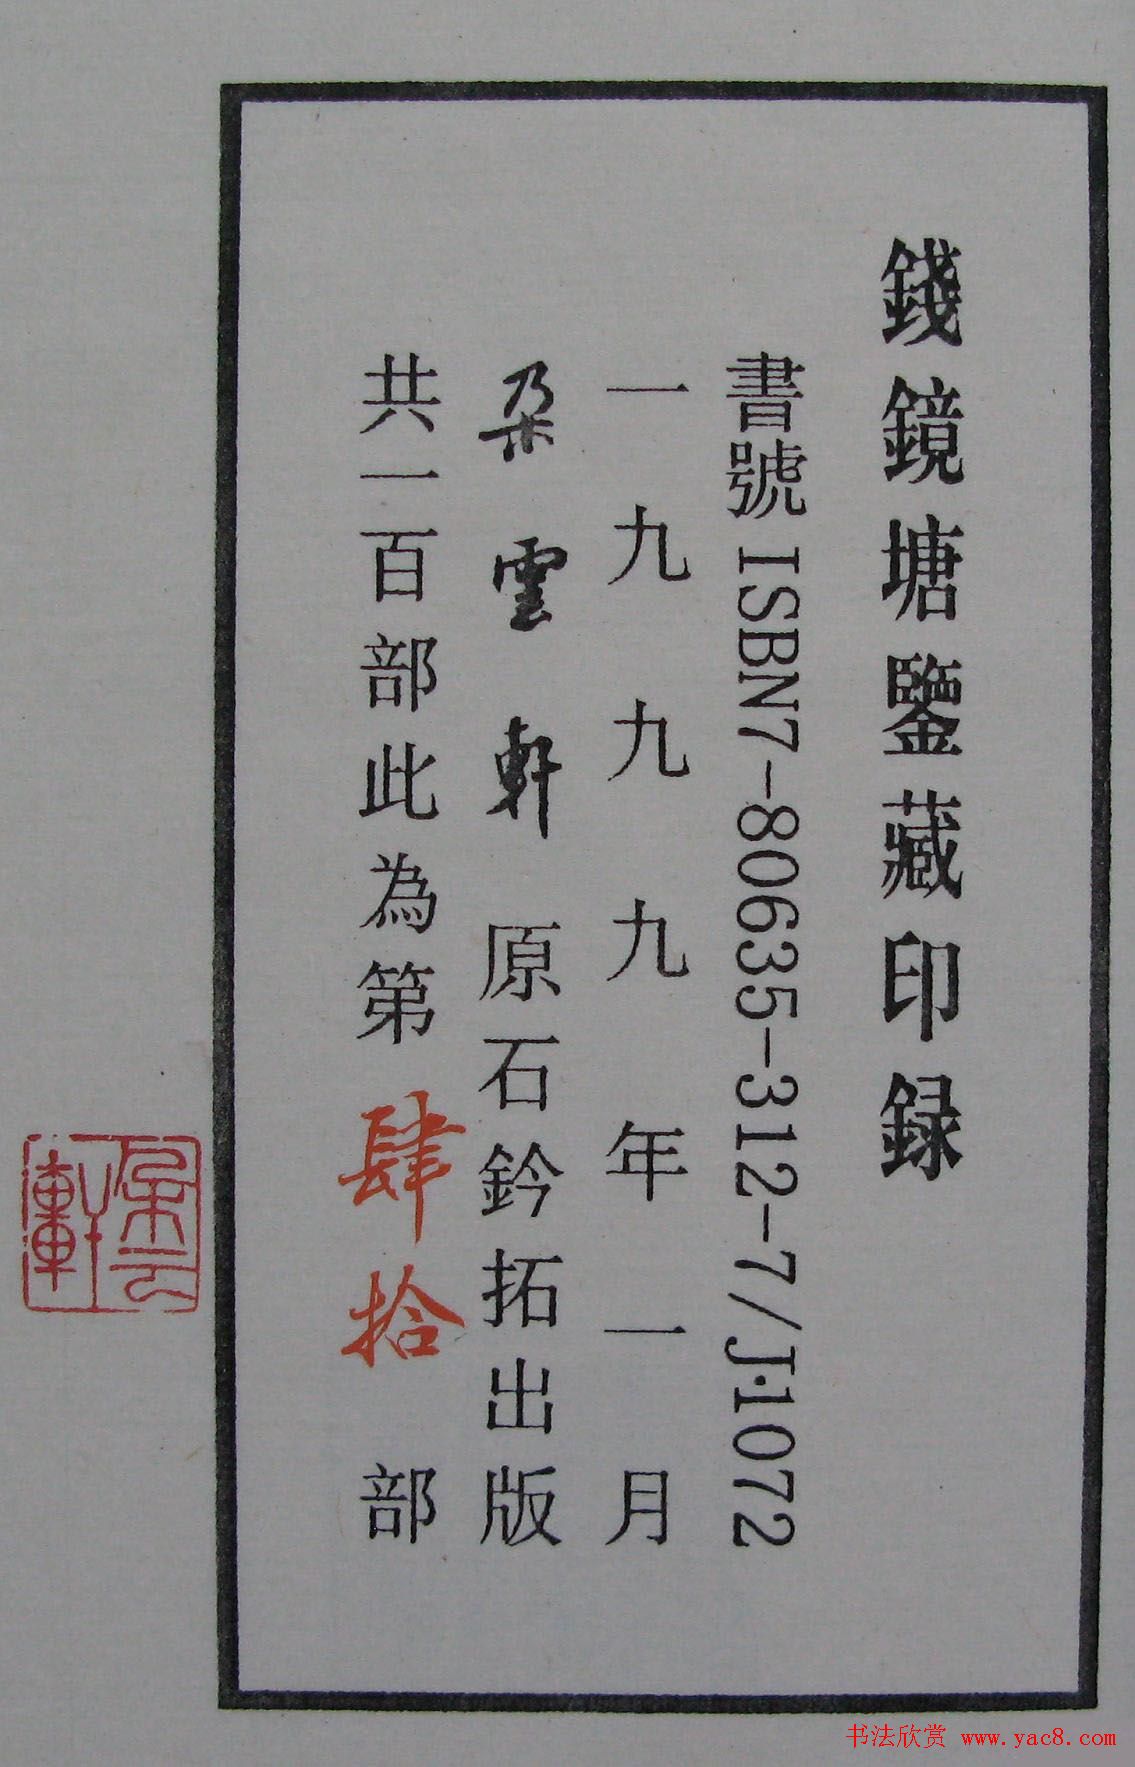 錢鏡塘鑒藏印録
書號 ISBN7-80635-312-7/J·1072
一九九九年一月
朵雲軒 原石鈐拓出版
共一百部此為第肆拾部
朵云軒
书法欣赏 www.yac8.com